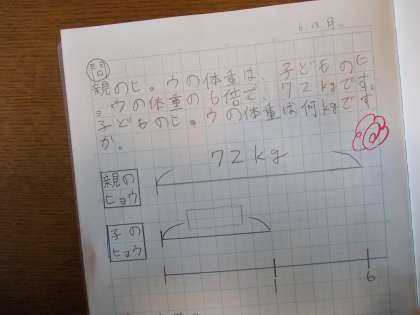 6/13 月。
問
親のヒョウの体重は、子どものヒ
ョウの体重の6倍で、72kgです。
子どものヒョウの体重は何kgです
か。
72kg
親の
ヒョウ
子の
ヒョウ
1
6